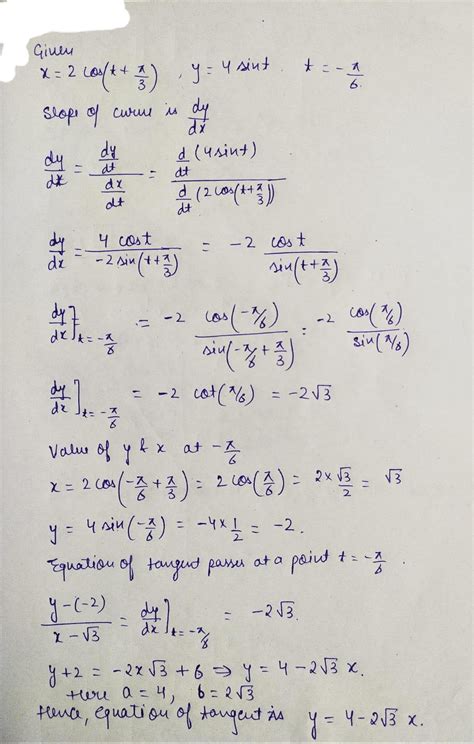 Given
x = 2 cos(t + π/3) , y = 4 sint . t = -π/6.
Slope of curve is dy/dx
dy/dx = (dy/dt)/(dx/dt) = (d/dt (4 sint))/(d/dt (2 cos(t+π/3)))
dy/dx = 4 cost/(-2 sin(t+π/3)) = -2 cost/sin(t+π/3)
dy/dx]t=-π/6 = -2 cos(-π/6)/sin(-π/6 + π/3) = -2 cos(π/6)/sin(π/6)
dy/dx]t=-π/6 = -2 cot(π/6) = -2√3
Value of y & x at -π/6
x = 2 cos(-π/6 + π/3) = 2 cos(π/6) = 2×√3/2 = √3
y = 4 sin(-π/6) = -4×1/2 = -2.
Equation of tangent passes at a point t = -π/6.
(y-(-2))/(x-√3) = dy/dx]t=-π/6 = -2√3.
y+2 = -2x√3 + 6 ⇒ y = 4-2√3 x.
Here a = 4, b = 2√3
Hence, equation of tangent is y = 4-2√3 x.